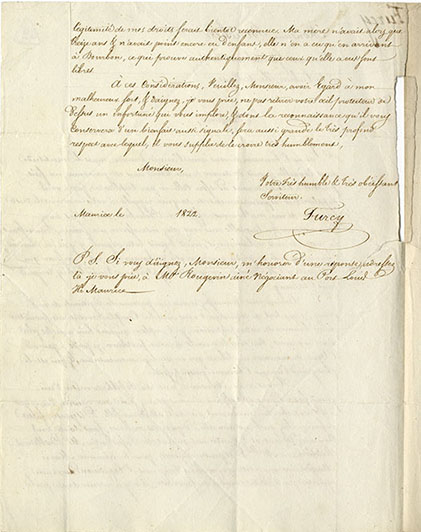 légitimité de mes droits serait bientôt reconnue. Ma mère n'avait alors que
treize ans & n'avait point encore eu d'enfans, elle n'en a eu qu'en arrivant
à Bourbon, ce qui prouve authentiquement que ceux qu'elle a eus sont
libres.
À ces Considérations, Veuillez, Monsieur, avoir Egard à mon
malheureux sort, & daignez, je vous prie, ne pas retirer votre œil protecteur de
dessus un infortuné qui vous implore, & dont la reconnaissance qu'il vous
conservera d'un bienfait aussi signalé, sera aussi grande que le très profond
respect avec lequel, Il vous supplie de le croire très humblement,
Monsieur,
Votre très humble & très obéissant
Serviteur.
Maurice le 1822
Furcy
P. S. Si vous daignez, Monsieur, m'honorer d'une réponse, adressez
la je vous prie, à Mr. Rougevin ainé Négociant au Port Louis
Ile Maurice
Furcy